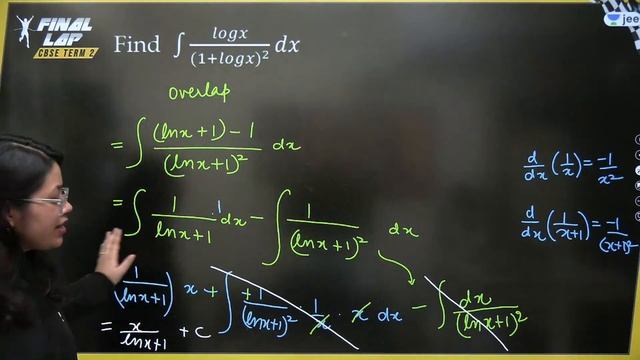 FINAL LAP
CBSE TERM 2
jee
Find ∫ logx/(1+logx)² dx
overlap
= ∫ ((lnx+1)-1)/(lnx+1)² dx
= ∫ 1/(lnx+1) ·1 dx - ∫ 1/(lnx+1)² dx
(1/(lnx+1)) x + ∫ +1/(lnx+1)² · 1/x · x dx - ∫ dx/(lnx+1)²
= x/(lnx+1) + c
d/dx (1/x) = -1/x²
d/dx (1/(x+1)) = -1/(x+1)²